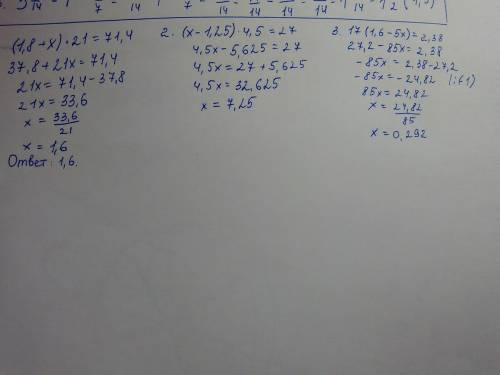 (1,8+x)·21=71,4
37,8+21x=71,4
21x=71,4-37,8
21x=33,6
x=33,6/21
x=1,6
Ответ: 1,6.
2. (x-1,25)·4,5=27
4,5x-5,625=27
4,5x=27+5,625
4,5x=32,625
x=7,25
3. 17(1,6-5x)=2,38
27,2-85x=2,38
-85x=2,38-27,2
-85x=-24,82
85x=24,82
x=24,82/85
x=0,292